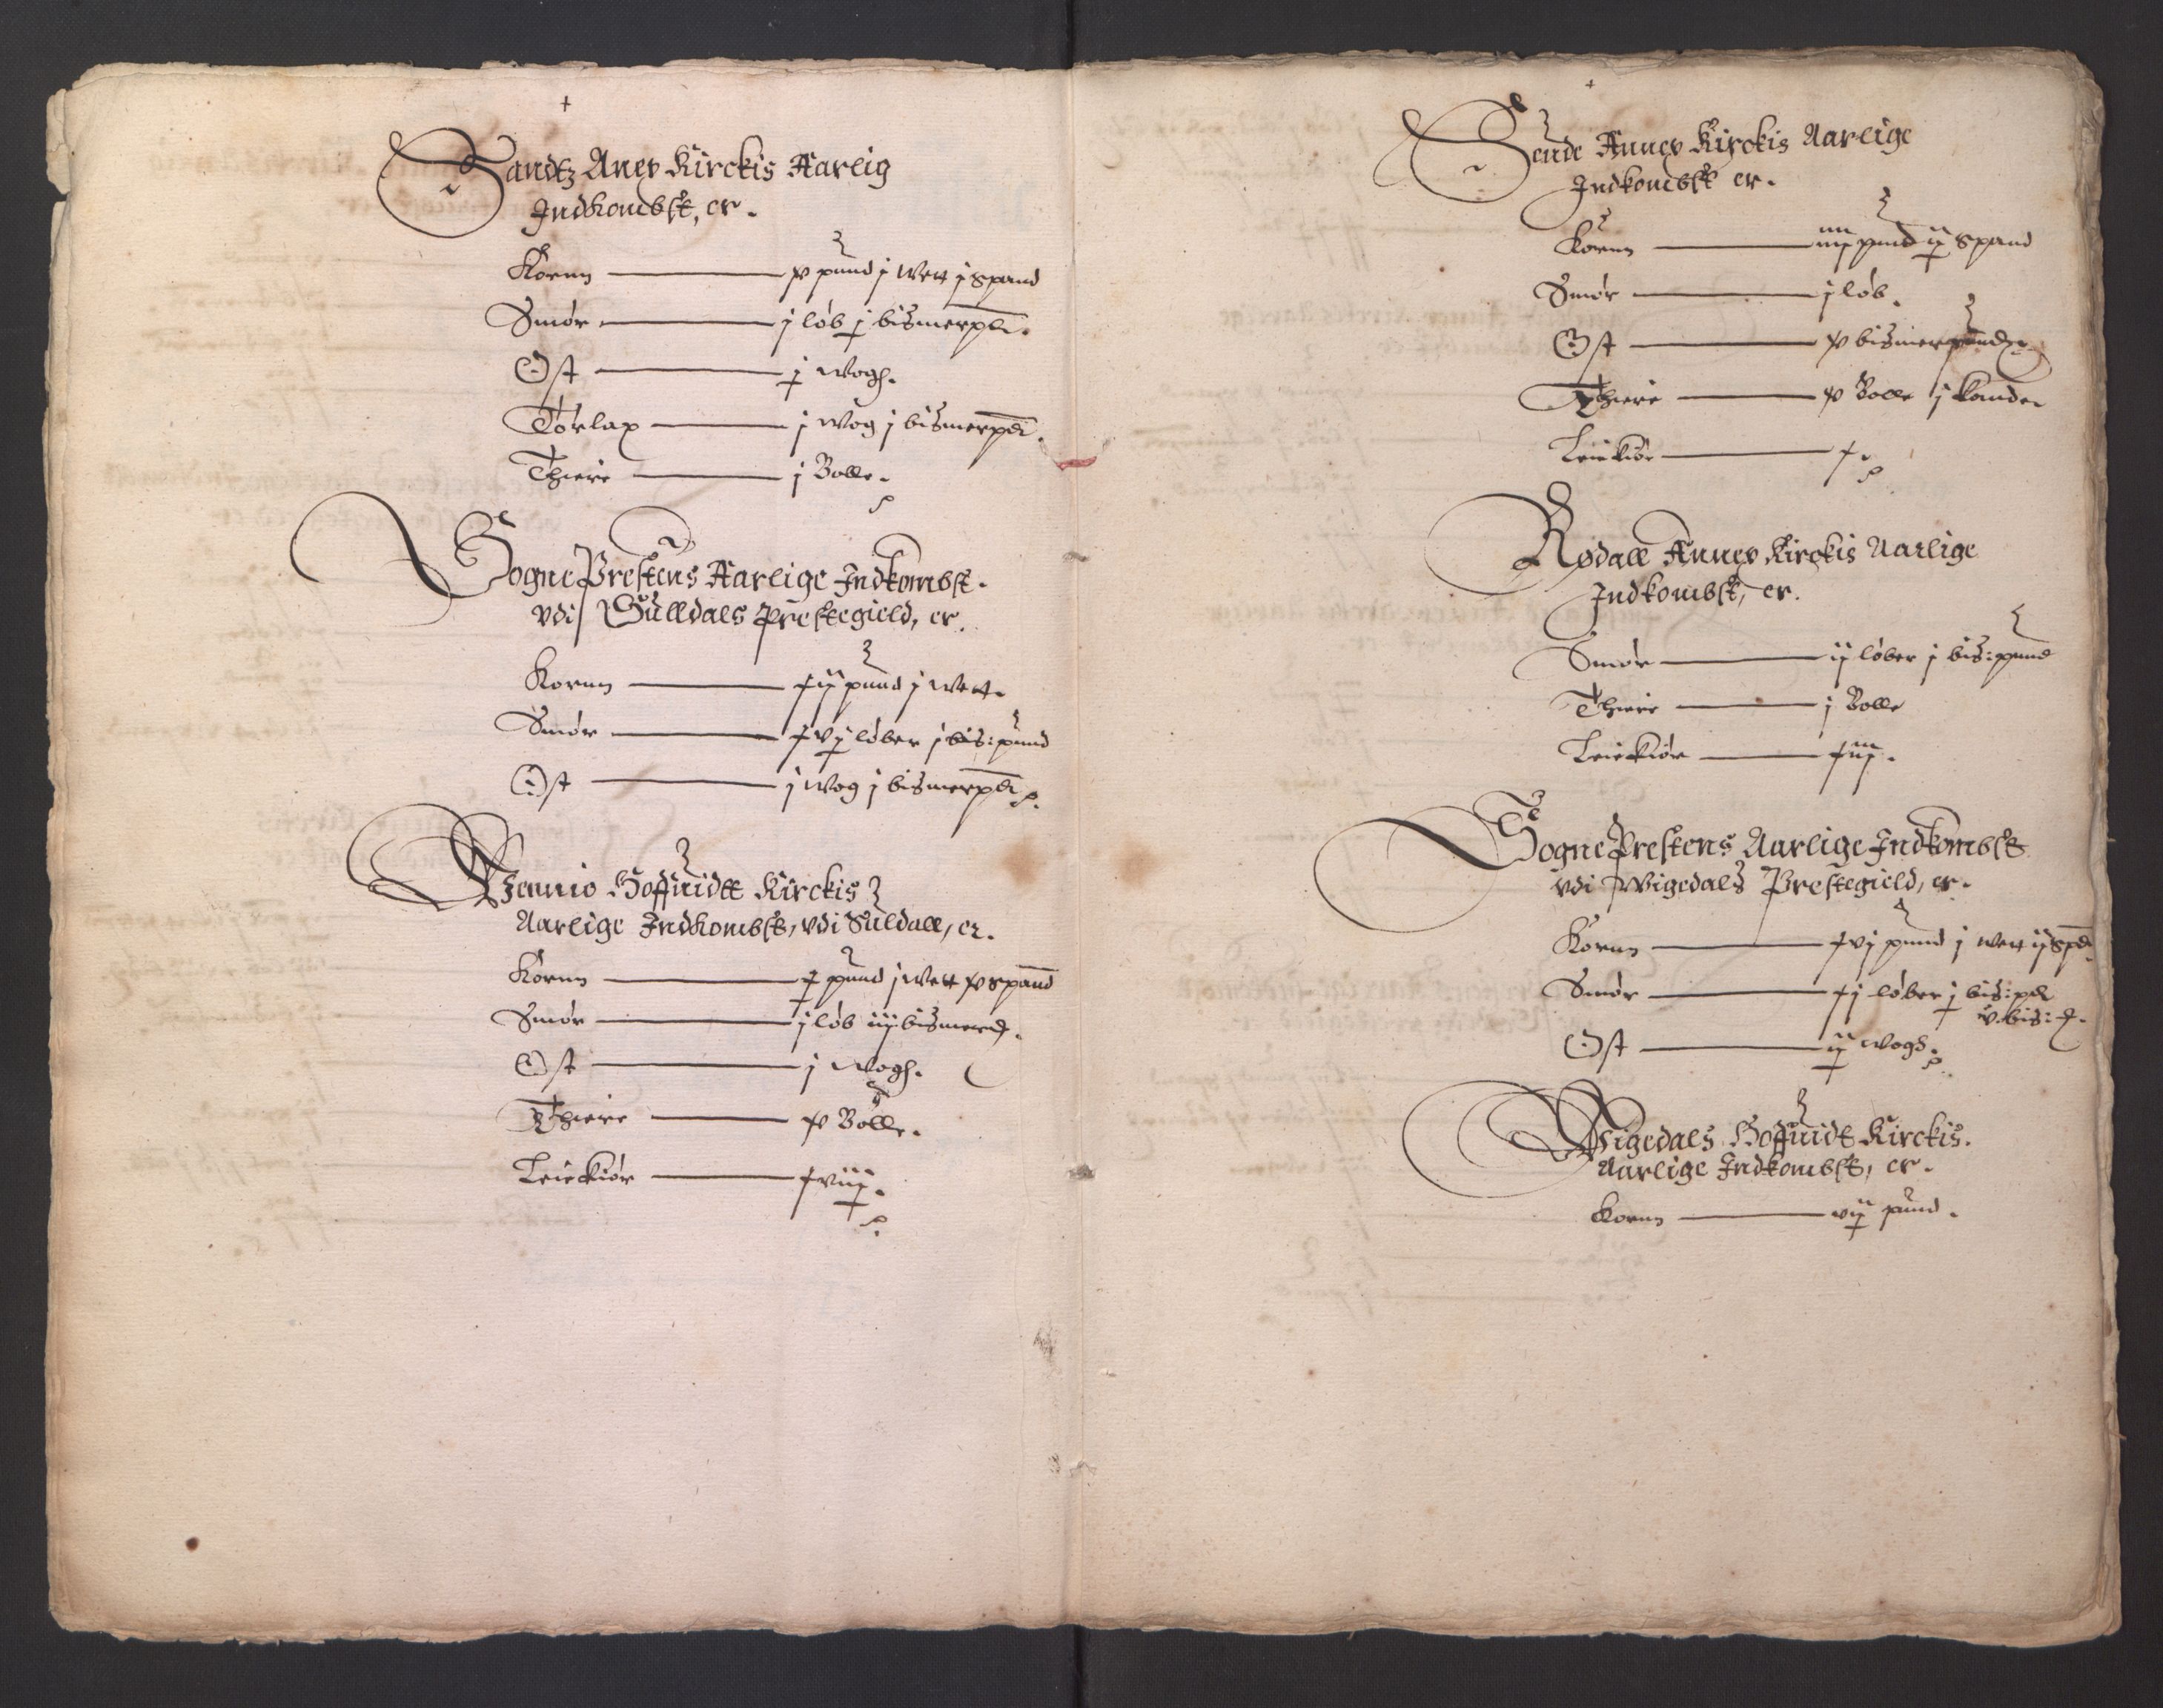 Sandtz Anex Kirckis Aarlig
Indkombst, er.
Kornn — x pund j wett j spand
Smør — j løb j bismerpd.
Ost — j wogh.
Tørlax — j wog j bismerpd.
Thiere — j Bolle.
SognePrestens Aarlige Indkombst.
vdi Sulldals prestegield, er.
Kornn — xij pund j wett.
Smør — xvj løber j bis: pund
Ost — j wog j bismerpd.
Hoffuidt Kirckis
Aarlige Indkombst, vdi Suldall, er.
Kornn — pund j wett x spand
Smør — j løb iij bismerpd.
Ost — j wogh.
Thiere — x Bolle.
Leiekiør — xviij.
Sende Annex Kirckis Aarlige
Indkombst er.
Kornn — iiij pund ij spand
Smør — j løb.
Ost — x bismerpund
Thiere — x Bolle j kande.
Leiekiør — x.
Rødall Annex Kirckis Aarlige
Indkombst, er.
Smør — ij løber j bis: pund
Thiere — j Bolle
Leiekiør — xiij.
SognePrestens Aarlige Indkombst
vdi Wigedals Prestegield, er.
Kornn — xvj pund j wett ij spd.
Smør — xj løber j bis: pd
Ost — ij wogh.
Wigedals Hoffuidt Kirckis.
Aarlige Indkombst, er.
Kornn — vij pund.